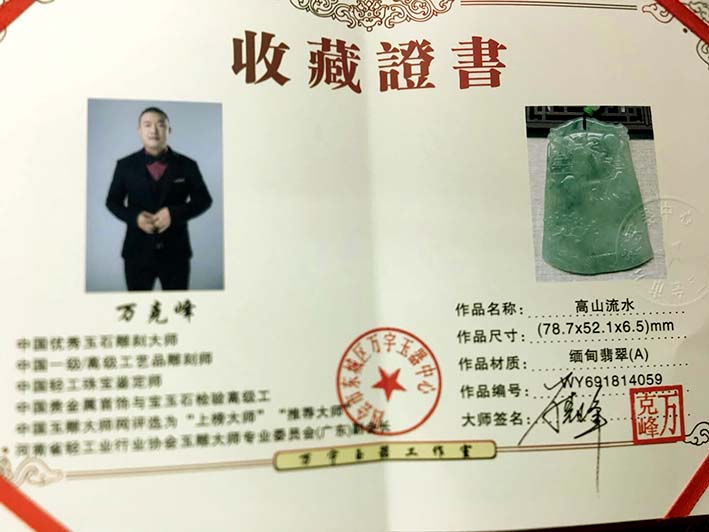 收藏證書
万克峰
中国优秀玉石雕刻大师
中国一级/高级工艺品雕刻师
中国轻工珠宝鉴定师
中国贵金属首饰与宝玉石检验高级工
中国玉雕大师网评选为“上榜大师”“推荐大师”
河南省轻工业行业协会玉雕大师专业委员会(广东)副会长
万宇玉器工作室
作品名称: 高山流水
作品尺寸: (78.7x52.1x6.5)mm
作品材质: 缅甸翡翠(A)
作品编号: WY691814059
大师签名: 万克峰
万克峰
城区万宇玉器中心